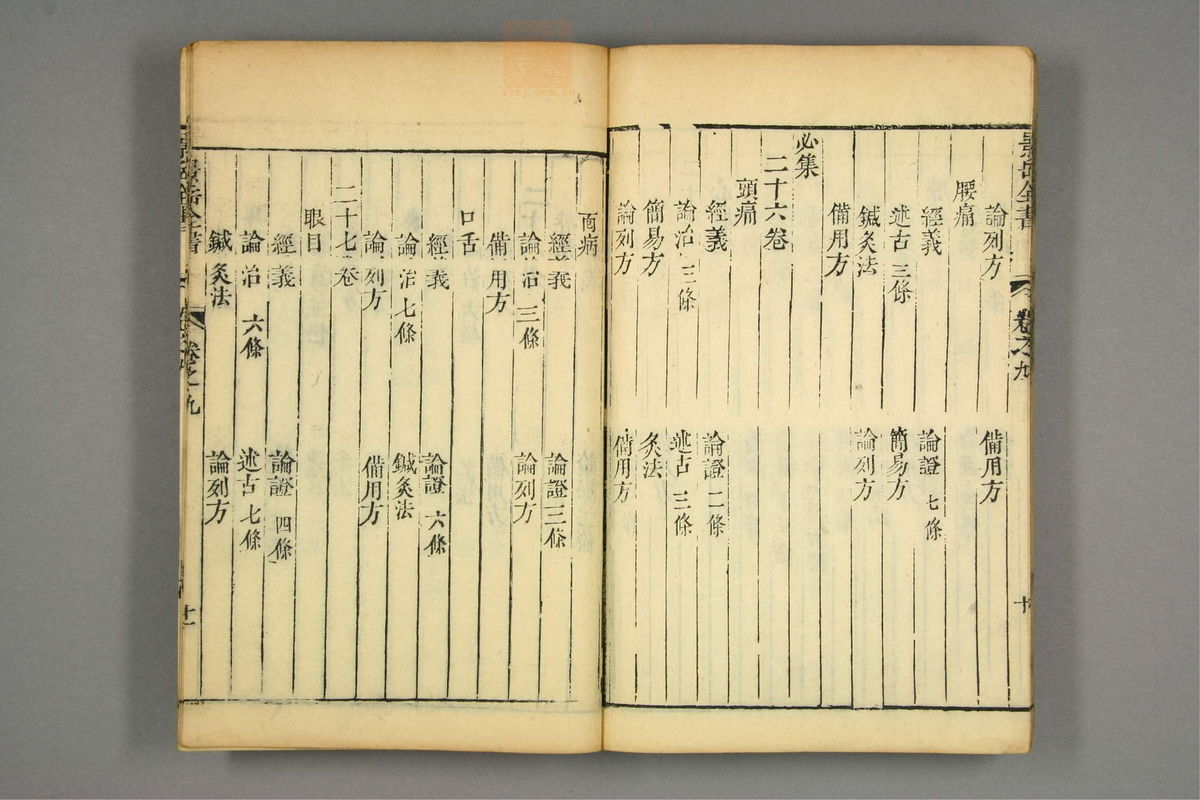 景岳全書 卷之九 十
論列方 備用方
腰痛
經義 論證 七條
述古 三條 簡易方
鍼灸法 論列方
備用方
必集
二十六卷
頭痛
經義 論證 二條
論治 三條 述古 三條
簡易方 灸法
論列方 備用方
面病
經義 論證 三條
論治 三條 論列方
備用方
口舌
經義 論證 六條
論治 七條 鍼灸法
論列方 備用方
二十七卷
眼目
經義 論證 四條
論治 六條 述古 七條
鍼灸法 論列方
景岳全書 卷之九 十一